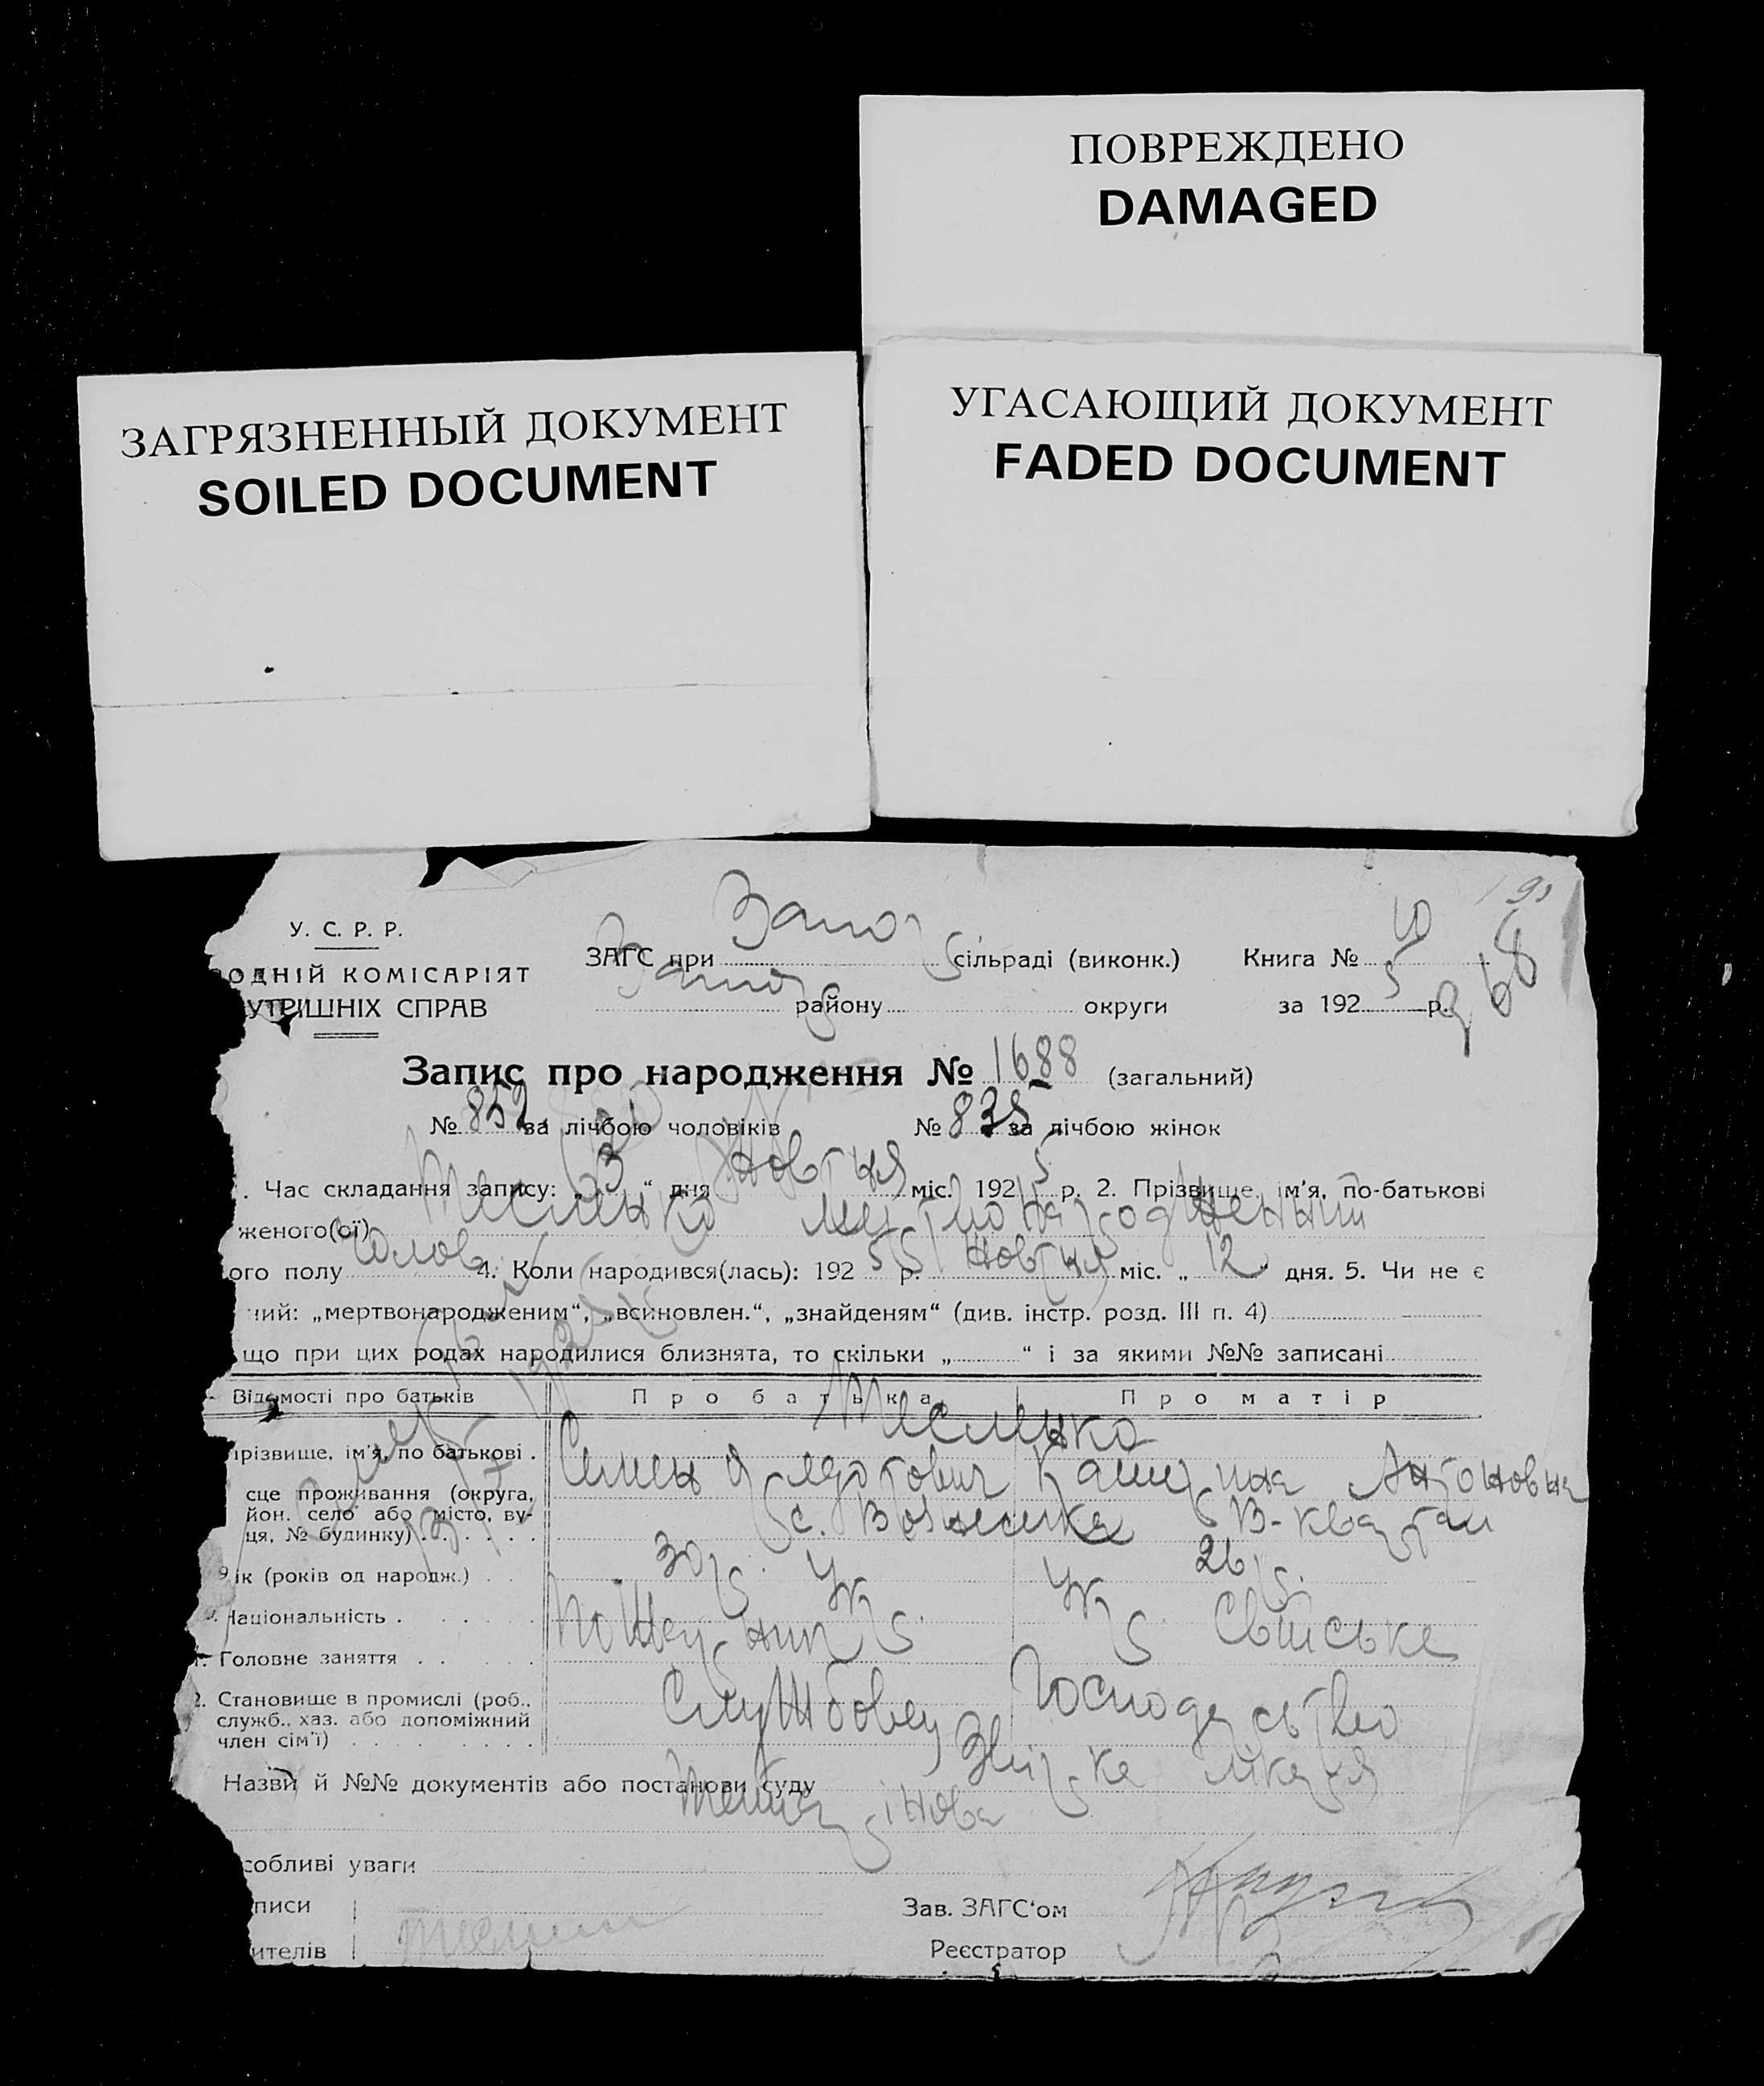 ПОВРЕЖДЕНО
DAMAGED
ЗАГРЯЗНЕННЫЙ ДОКУМЕНТ
SOILED DOCUMENT
УГАСАЮЩИЙ ДОКУМЕНТ
FADED DOCUMENT
У. С. Р. Р.
ОДНІЙ КОМІСАРІЯТ
УТРІШНІХ СПРАВ
ЗАГС при Запор сільраді (виконк.) Книга № 10
Запор району округи за 192 5 р.
968
Запис про народження № 1688 (загальний)
№ 852 за лічбою чоловіків № 835 за лічбою жінок
. Час складання запису: „ 13 “ дня Жовтня міс. 192 5 р. 2. Прізвище, ім'я, по-батькові
женого(ої) Тесленко мертвонароджений
ого полу чолов. 4. Коли народився(лась): 192 5 р. Жовтня міс. „ 12 “ дня. 5. Чи не є
ий: „мертвонародженим“, „всиновлен.“, „знайденям“ (див. інстр. розд. III п. 4)
що при цих родах народилися близнята, то скільки „ “ і за якими №№ записані
Відомості про батьків Про батька Про матір
Тесленко
прізвище, ім'я, по батькові . Семен Катерина Антоновна
сце проживання (округа,
йон. село або місто, ву-
ця, № будинку) с. Вознесенка В-квартал
9 ік (років од народж.) 30 р. 26 р.
Національність . Укр. Укр.
Головне заняття . . Свійське
2. Становище в промислі (роб.,
служб., хаз. або допоміжний
член сім'ї) Службовец Господарство
Назви й №№ документів або постанови суду лікаря
собливі уваги
писи Зав. ЗАГС'ом
ителів Реєстратор